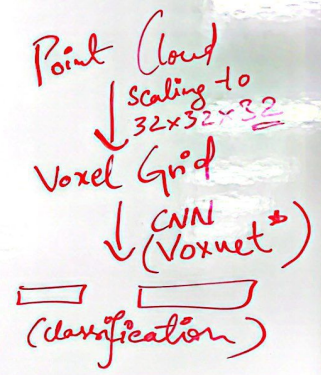 Point Cloud
Scaling to
32x32x32
Voxel Grid
CNN
(Voxnet*)
(classification)